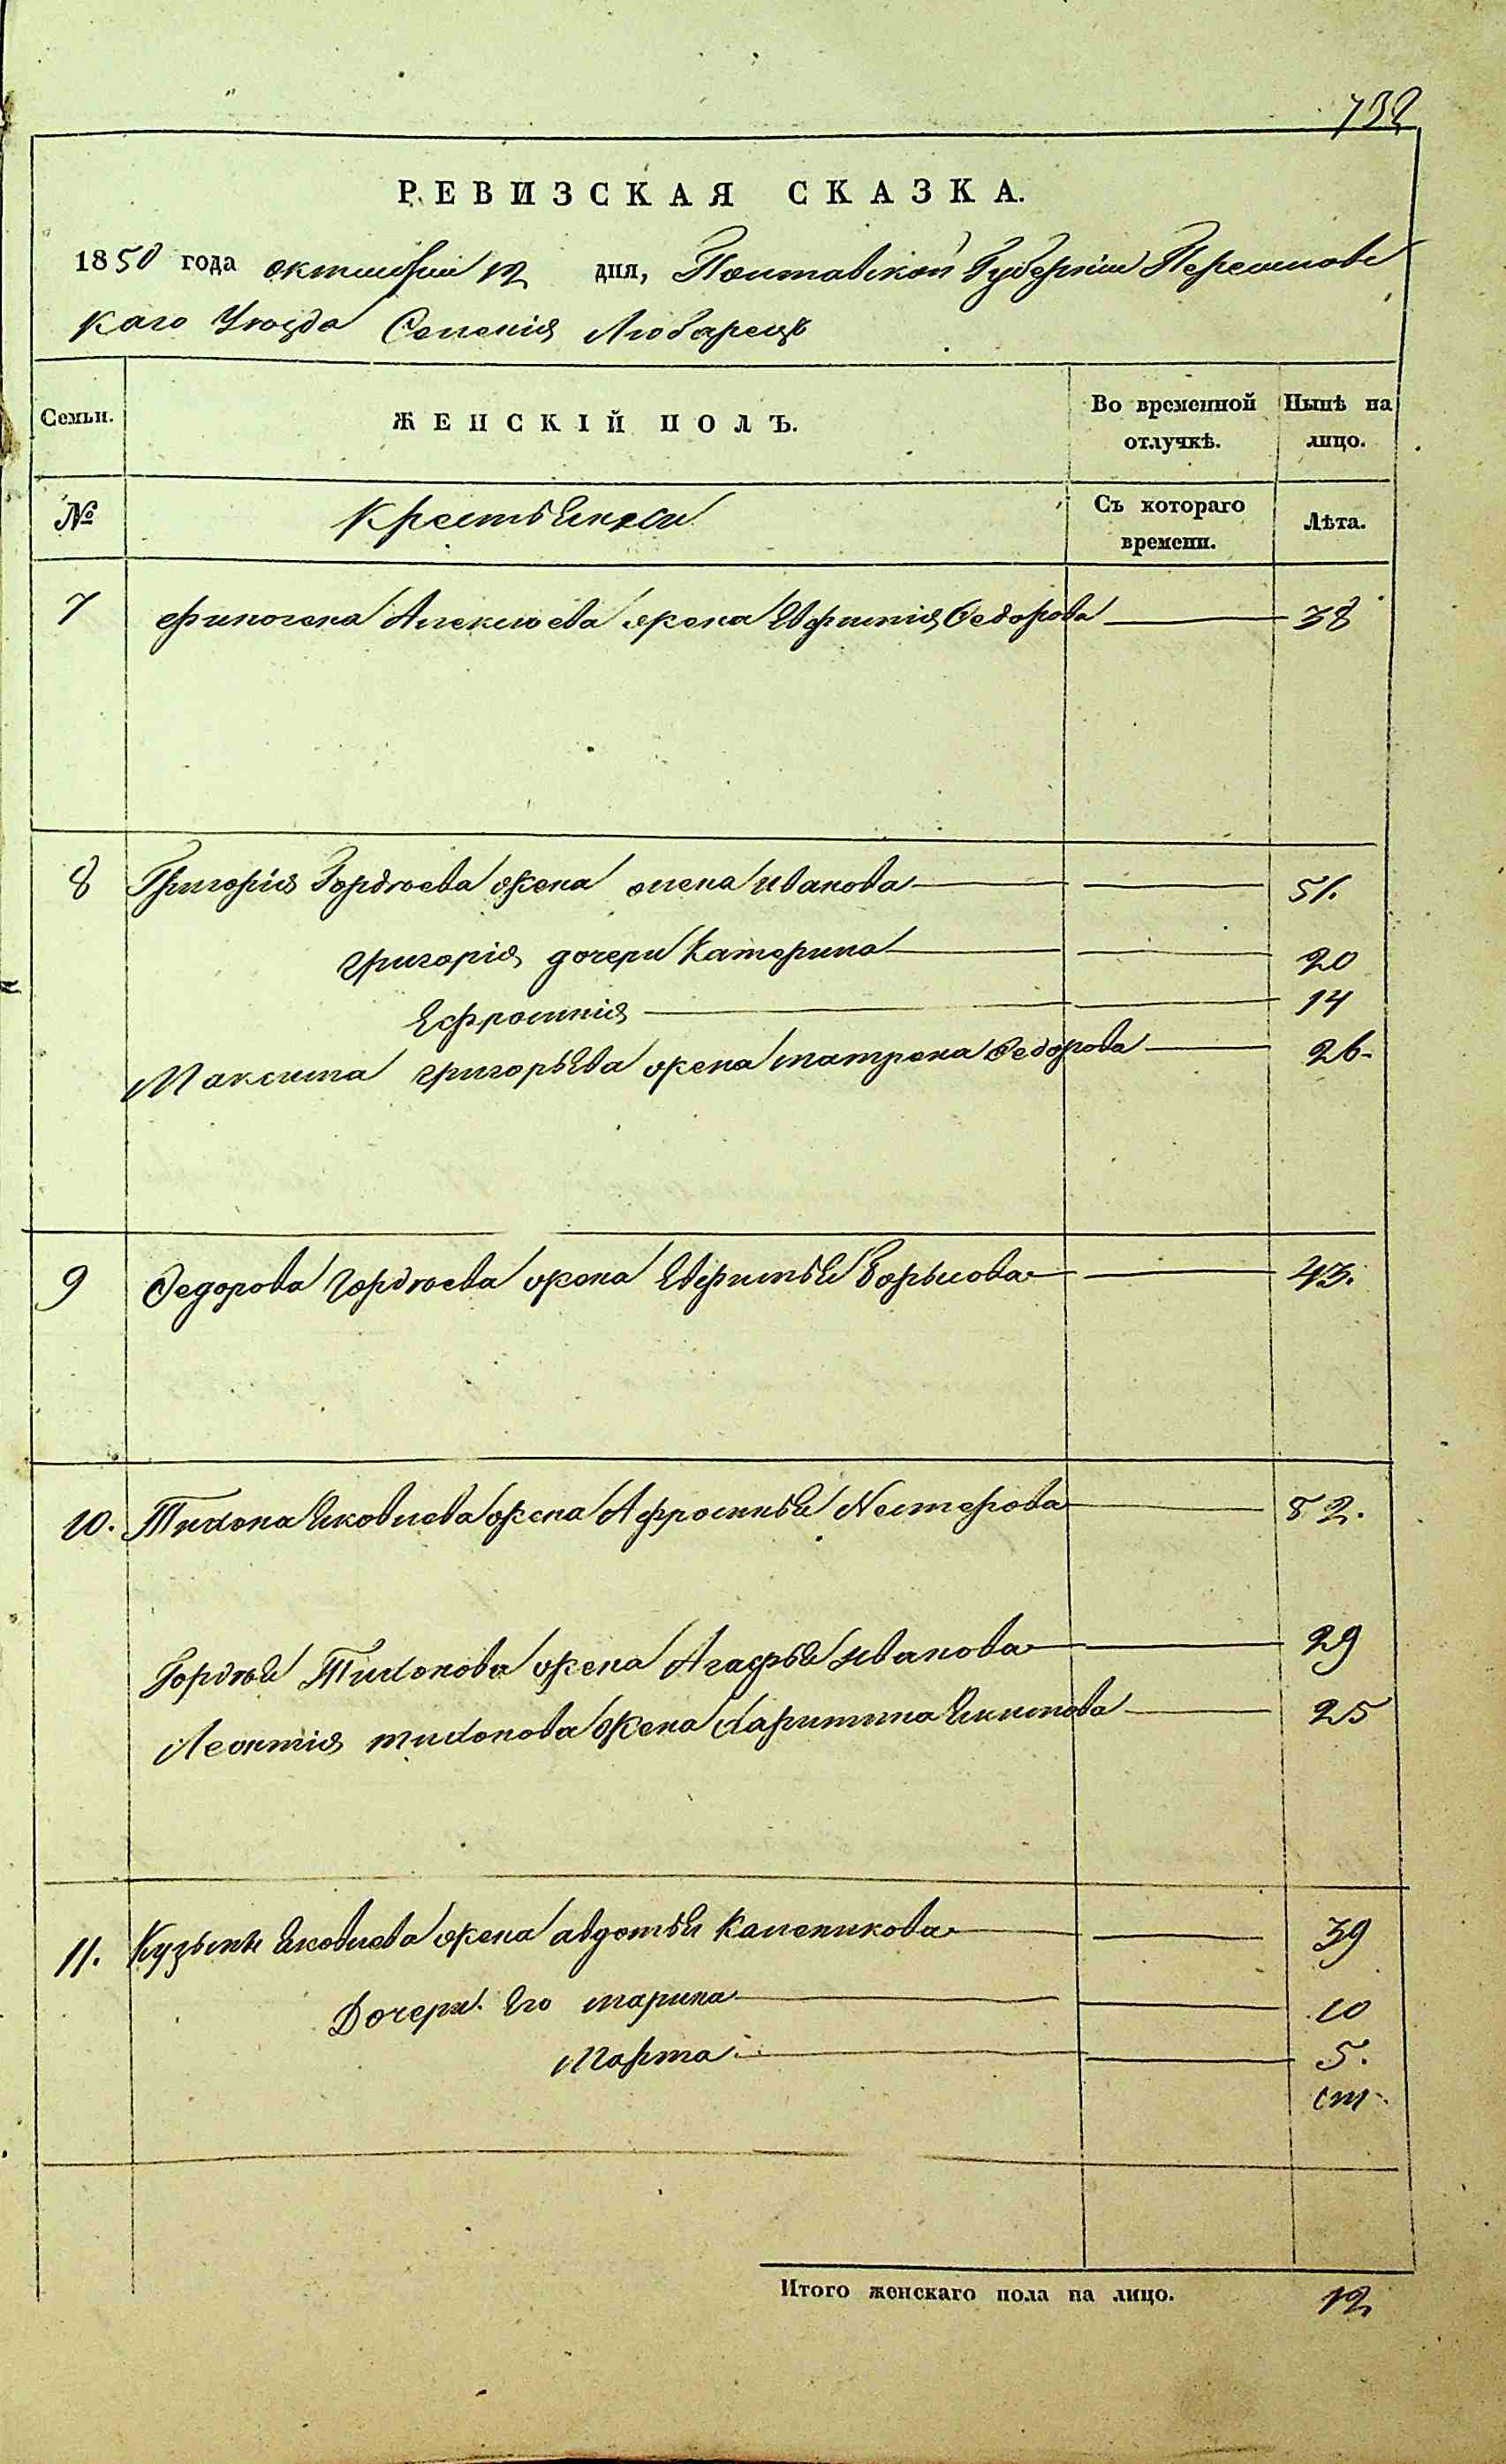 732
РЕВИЗСКАЯ СКАЗКА.
1850 года октября 12 дня, Полтавской Губерніи Переяславс
каго Уезда Селенія Любарецъ
Семьи. ЖЕНСКІЙ ПОЛЪ. Во временной отлучкѣ. Нынѣ на лицо.
№ Крестьянки Съ котораго времени. Лѣта.
7 Финогена Алексѣева жена Евфимія Федорова 38
8 Григорія Гордѣева жена олена иванова 51.
григорія дочери Катерина 20
Ефросинія 14
Максима григорьева жена матрена Федорова 26.
9 Федорова Гордѣева жена Евфимья Борисова 43.
10. Тихона Яковлева жена Афросинья Нестерова 52.
Гордѣя Тихонова жена Агафья иванова 29
Леонтія тихонова жена Харитина Якимова 25
11. Кузьмы Яковлева жена авдотья Каленикова 39
Дочери Его марина 10
Марта 5.
Итого женскаго пола на лицо. 12